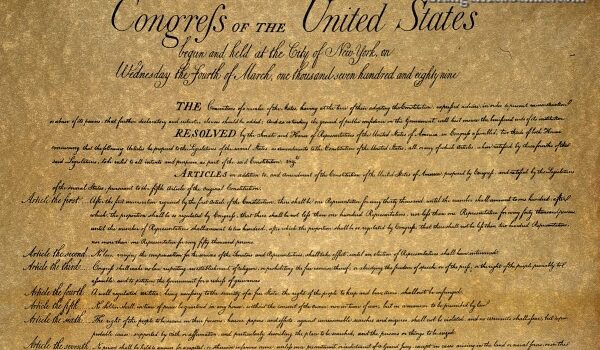 Congreſs OF THE United States
begun and held at the City of New York, on
Wednesday the fourth of March, one thousand seven hundred and eighty nine
THE Conventions of a number of the States, having at the time of their adopting the Constitution, expressed a desire, in order to prevent misconstruction
or abuse of its powers, that further declaratory and restrictive clauses should be added: And as extending the ground of public confidence in the Government, will best ensure the beneficent ends of its institution
RESOLVED by the Senate and House of Representatives of the United States of America, in Congreſs aſsembled, two thirds of both Houses
concurring, that the following Articles be proposed to the Legislatures of the several States, as amendments to the Constitution of the United States, all or any of which Articles, when ratified by three fourths of the
said Legislatures, to be valid to all intents and purposes, as part of the said Constitution; viz.t
ARTICLES in addition to, and amendment of the Constitution of the United States of America, proposed by Congreſs, and ratified by the Legislatures
of the several States, pursuant to the fifth Article of the original Constitution.
Article the first. After the first enumeration required by the first Article of the Constitution, there shall be one Representative for every thirty thousand, until the number shall amount to one hundred, after
which, the proportion shall be so regulated by Congreſs, that there shall be not leſs than one hundred Representatives, nor leſs than one Representative for every forty thousand persons,
until the number of Representatives shall amount to two hundred, after which the proportion shall be so regulated by Congreſs, that there shall not be leſs than two hundred Representatives,
nor more than one Representative for every fifty thousand persons.
Article the second. No law, varying the compensation for the services of the Senators and Representatives, shall take effect, until an election of Representatives shall have intervened.
Article the third. Congreſs shall make no law respecting an establishment of religion, or prohibiting the free exercise thereof; or abridging the freedom of speech, or of the preſs, or the right of the people peaceably to
aſsemble, and to petition the Government for a redreſs of grievances.
Article the fourth. A well regulated militia, being neceſsary to the security of a free State, the right of the people to keep and bear arms, shall not be infringed.
Article the fifth. No Soldier shall, in time of peace be quartered in any house, without the consent of the owner, nor in time of war, but in a manner to be prescribed by law.
Article the sixth. The right of the people to be secure in their persons, houses, papers, and effects, against unreasonable searches and seizures, shall not be violated, and no warrants shall iſsue, but upon
probable cause, supported by oath or affirmation, and particularly describing the place to be searched, and the persons or things to be seized.
Article the seventh. No person shall be held to answer for a capital, or otherwise infamous crime, unleſs on a presentment or indictment of a Grand Jury, except in cases arising in the land or naval forces, or in the